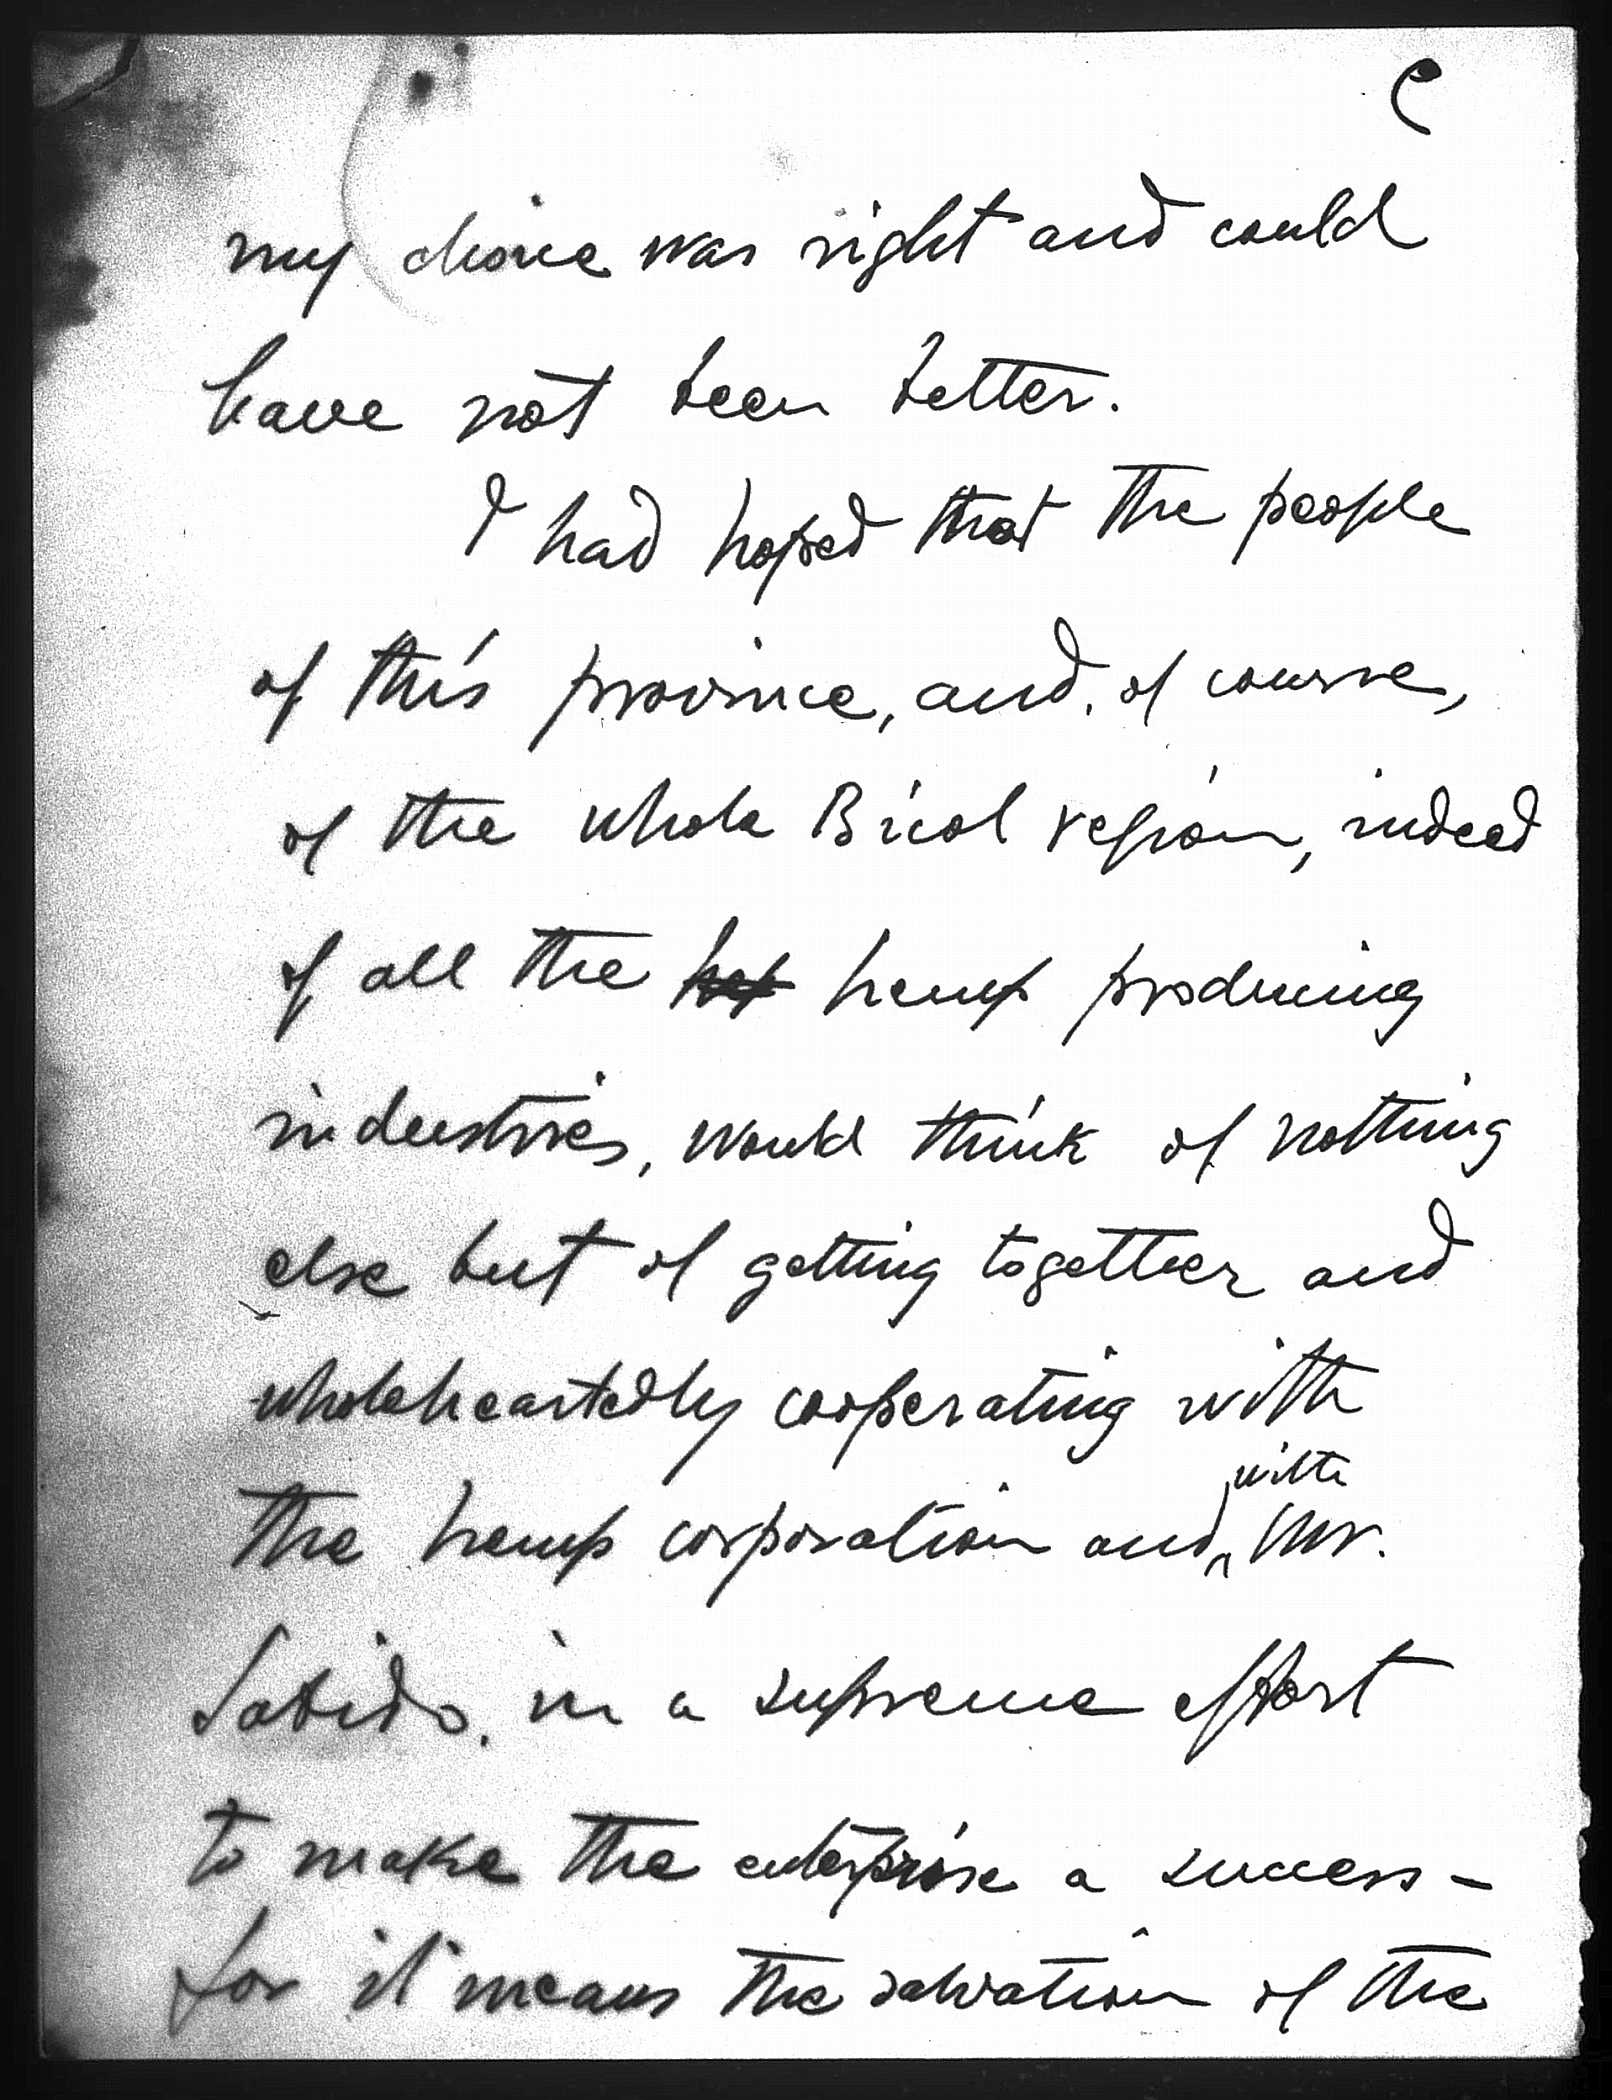 my choice was right and could
have not been better.
I had hoped that the people
of this province, and, of course,
of the whole Bicol region, indeed
of all the hemp producing
industries, would think of nothing
else but of getting together and
wholeheartedly cooperating with
with
the hemp corporation and Mr.
Sabido, in a supreme effort
to make the enterprise a success –
for it means the salvation of the